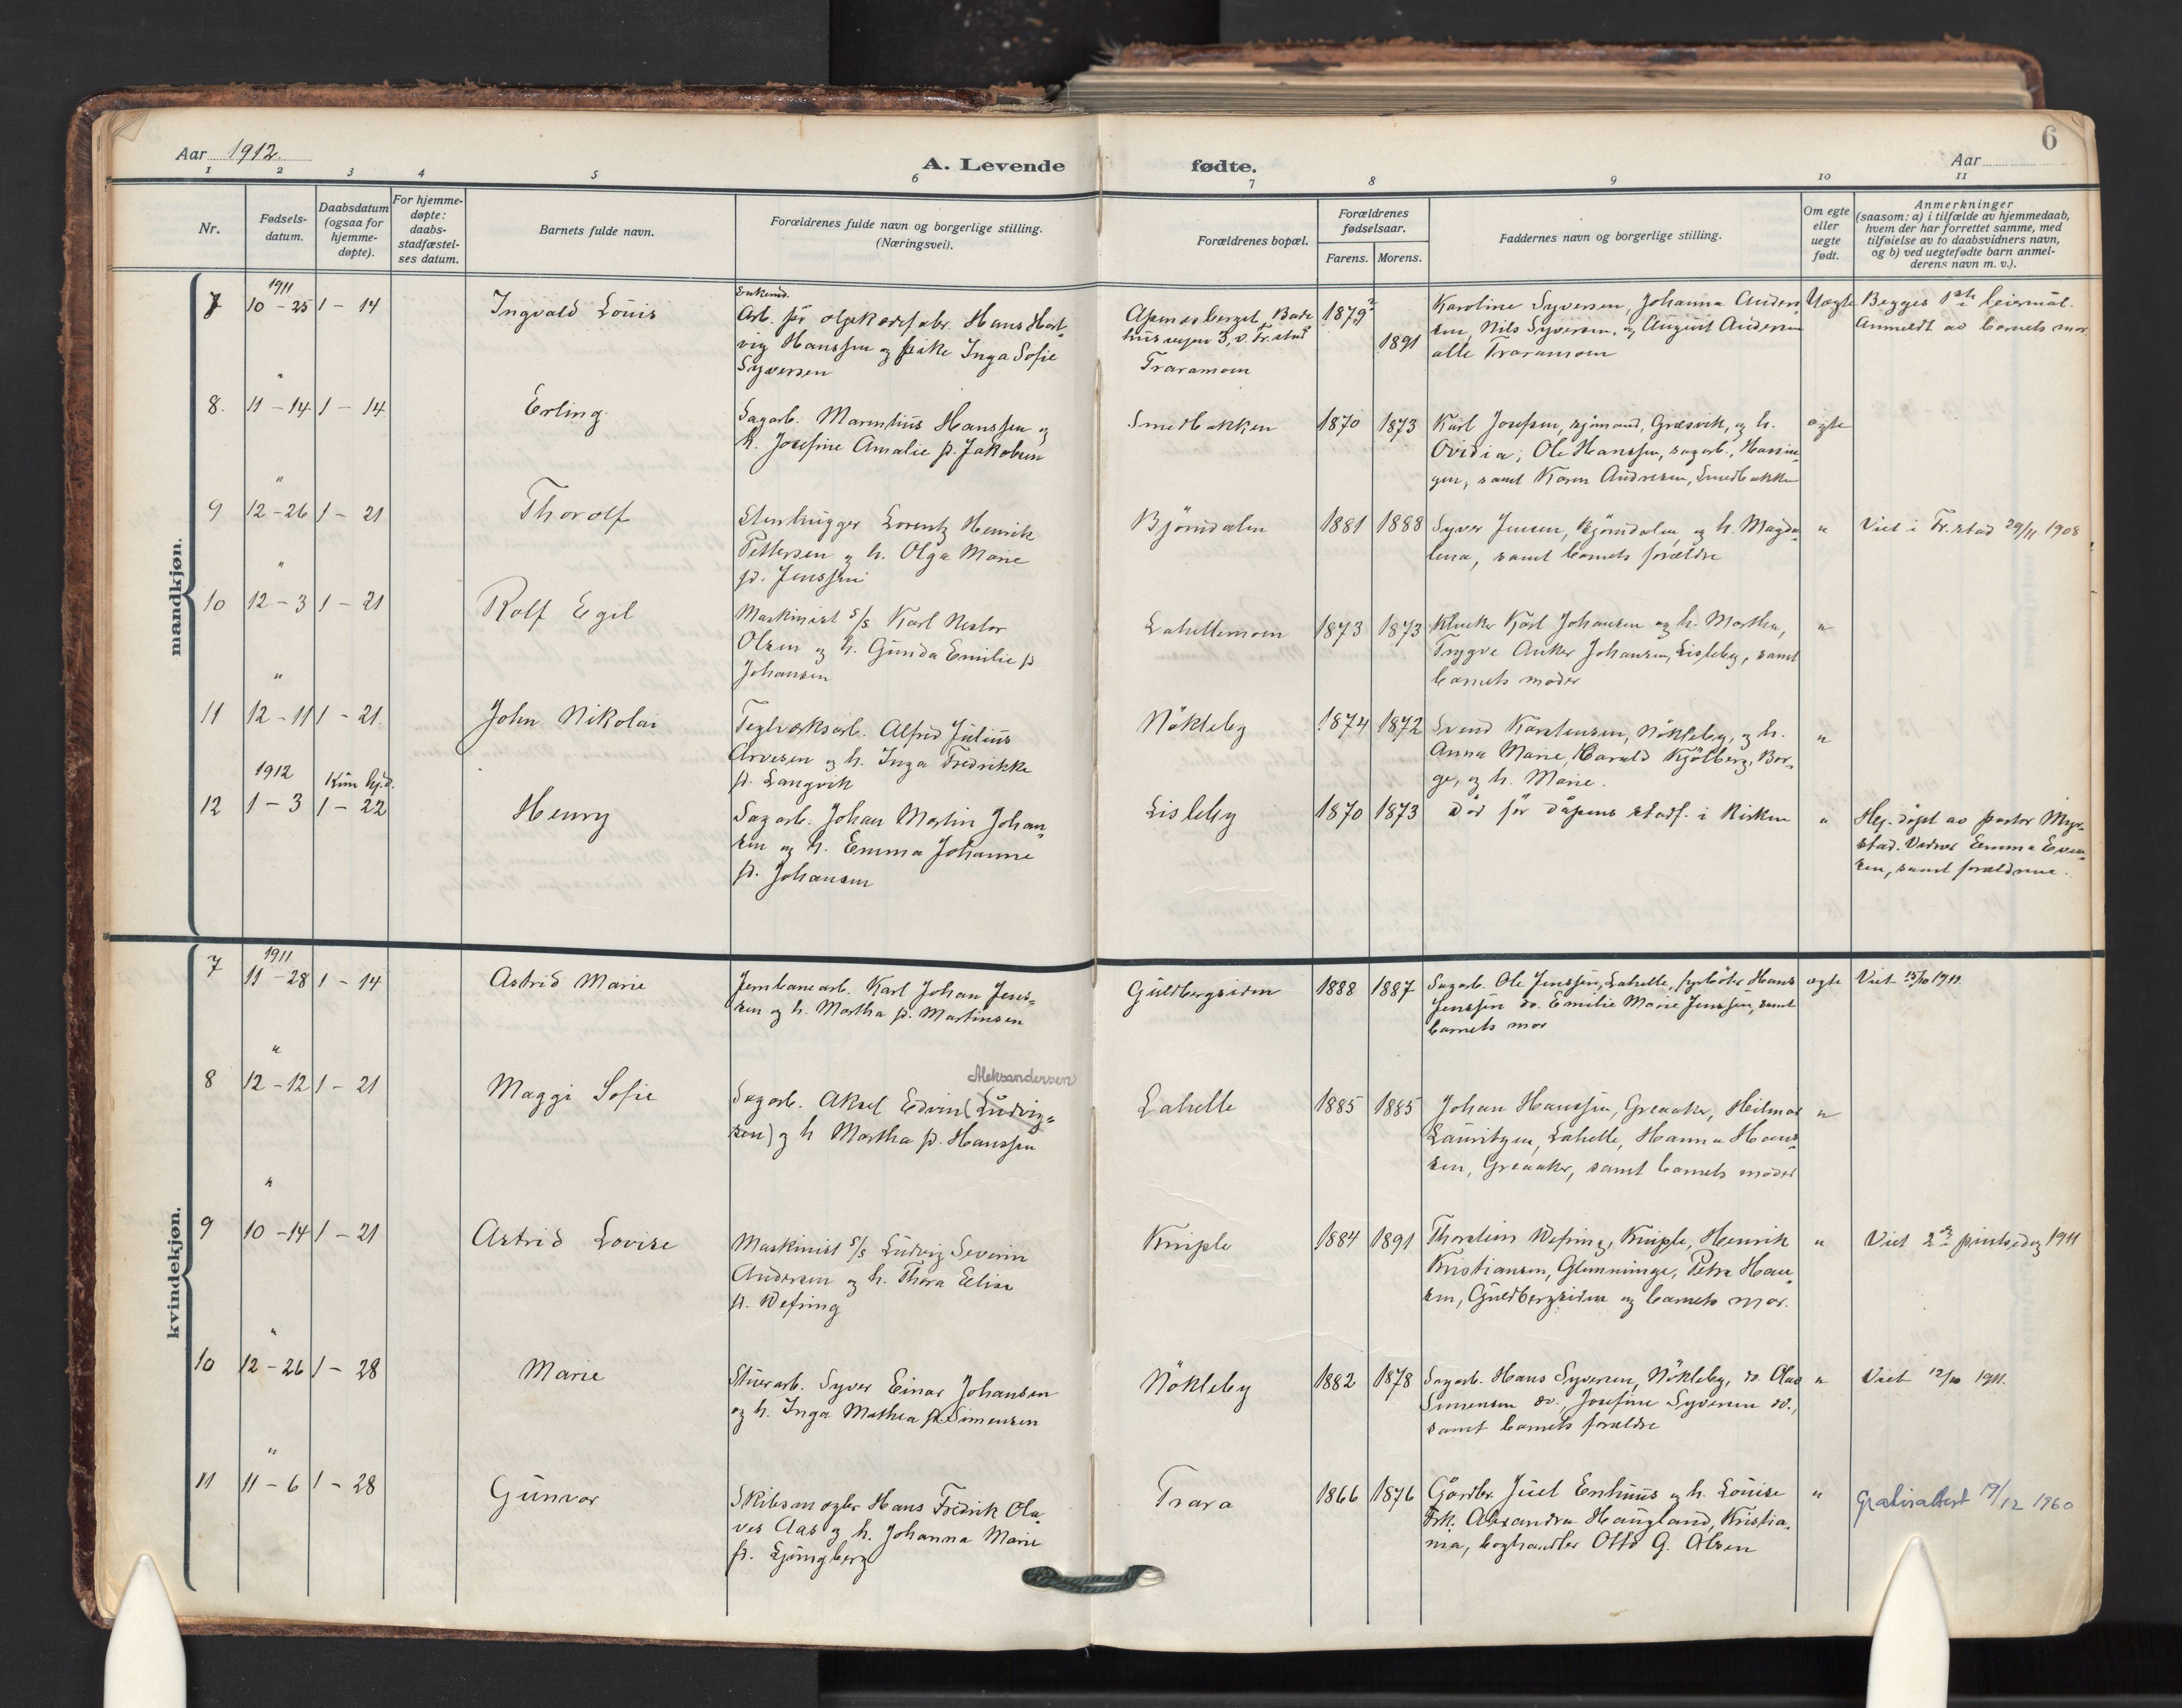 Aar 1912.
A. Levende fødte.
Aar
6
1 2 3 4 5 6 7 8 9 10 11
Nr.
Fødsels-
datum.
Daabsdatum
(ogsaa for
hjemme-
døpte).
For hjemme-
døpte:
daabs-
stadfæstel-
ses datum.
Barnets fulde navn.
Forældrenes fulde navn og borgerlige stilling.
(Næringsvei).
Forældrenes bopæl.
Forældrenes
fødselsaar.
Farens. Morens.
Faddernes navn og borgerlige stilling.
Om egte
eller
uegte
født.
Anmerkninger
(saasom: a) i tilfælde av hjemmedaab,
hvem der har forrettet samme, med
tilføielse av to daabsvidners navn,
og b) ved uegtefødte barn anmel-
derens navn m. v.).
mandkjøn.
7
1911
10 - 25
1 - 14
Ingvald Louis
Enkemd.
Arb. på oljeklædefabr. Hans Hart-
vig Hanssen og pike Inga Sofie
Syversen
v. Fr.stad
Traramoen
1879
1891
Karoline Syversen, Johanna Ander-
sen, Nils Syversen, og August Andersen
alle Traramoen
Uægte
Begges 1ste leiermål.
Anmeldt av barnets mor.
8.
"
11 - 14
1 - 14
Erling
Sagarb. Marentius Hanssen og
h. Josefine Amalie f. Jakobsen
Smedbakken
1870
1873
Karl Josefsen, sjömand, Græsvik, og h.
Ovidia, Ole Hanssen, sagarb., Hassin-
gen, samt Karen Andresen, Smedbakken
ægte
9
"
12 - 26
1 - 21
Thorolf
Stenhugger Lorentz Henrik
Pettersen og h. Olga Marie
f. Jenssen
Björndalen
1881
1888
Syver Jensen, Björndalen, og h. Magda-
lena, samt barnets forældre
"
Viet i Fr.stad 29/11 1908
10
"
12 - 3
1 - 21
Rolf Egil
Maskinist s/s Karl Nestor
Olsen og h. Gunda Emilie f.
Johansen
Lahellemoen
1873
1873
Klokker Karl Johansen og h. Martha,
Trygve Anker Johansen, Lisleby, samt
barnets moder
"
11
"
12 - 11
1 - 21.
John Nikolai
Teglverksarb. Alfred Julius
Arvesen og h. Inga Fredrikke
f. Langvik
Nökleby
1874
1872
Svend Karstensen, Nökleby, og h.
Anna Marie, Harald Kjölberg, Bor-
ge, og h. Marie.
"
12
1912
1 - 3
Kun hj.d.
1 - 22
Henry
Sagarb. Johan Martin Johan-
sen og h. Emma Johanne
f. Johansen
Lisleby
1870
1873
död för dåpens stadf. i kirken
"
Hj. döpt av pastor Myr-
stad. Vidner Emma Even-
sen, samt forældrene.
kvindekjøn.
7
1911
11 - 28
1 - 14
Astrid Marie
Jernbanearb. Karl Johan Jens-
sen og h. Martha f. Martinsen
Guldbergsiden
1888
1887
Sagarb. Ole Jenssen, Lahelle, fyrböter Hans
Jenssen do. Emilie Marie Jenssen, samt
barnets mor
ægte
Viet 15/10 1911.
8
"
12 - 12
1 - 21
Maggi Sofie
Aleksandersen
Sagarb. Aksel Edvin (Ludvig-
sen) og h Martha f. Hanssen
Lahelle
1885
1885
Johan Hanssen, Greaaker, Hilmar
Lauritzen, Lahelle, Hanna Hans-
sen, Greaaker, samt barnets moder
"
9
"
10 - 14
1 - 21
Astrid Lovise
Maskinist s/s Ludvig Severin
Andersen og h. Thora Elise
f. Wefring
Kniple
1884
1891
Thorstein Wefring, Kniple, Henrik
Kristiansen, Glemminge, Petra Han-
sen, Guldbergsiden og barnets mor.
"
Viet 2den pinsedag 1911
10
"
12 - 26
1 - 28
Marie
Stuerarb. Syver Einar Johansen
og h. Inga Mathea f. Simensen
Nökleby
1882
1878
Sagarb. Hans Syversen, Nökleby, do. Olav
Simensen do., Josefine Syversen do.,
samt barnets forældre
"
Viet 12/10 1911.
11
"
11 - 6
1 - 28
Gunvor
Skibsmægler Hans Fredrik Ola-
ves Aas og h. Johanna Marie
f. Ljungberg
Trara
1866
1876
Gårdbr. Juel Enhuus og h. Louise
Frk. Alexandra Haugland, Kristia-
nia, boghandler Otto G. Olsen
"
Gratisattest 19/12 1960